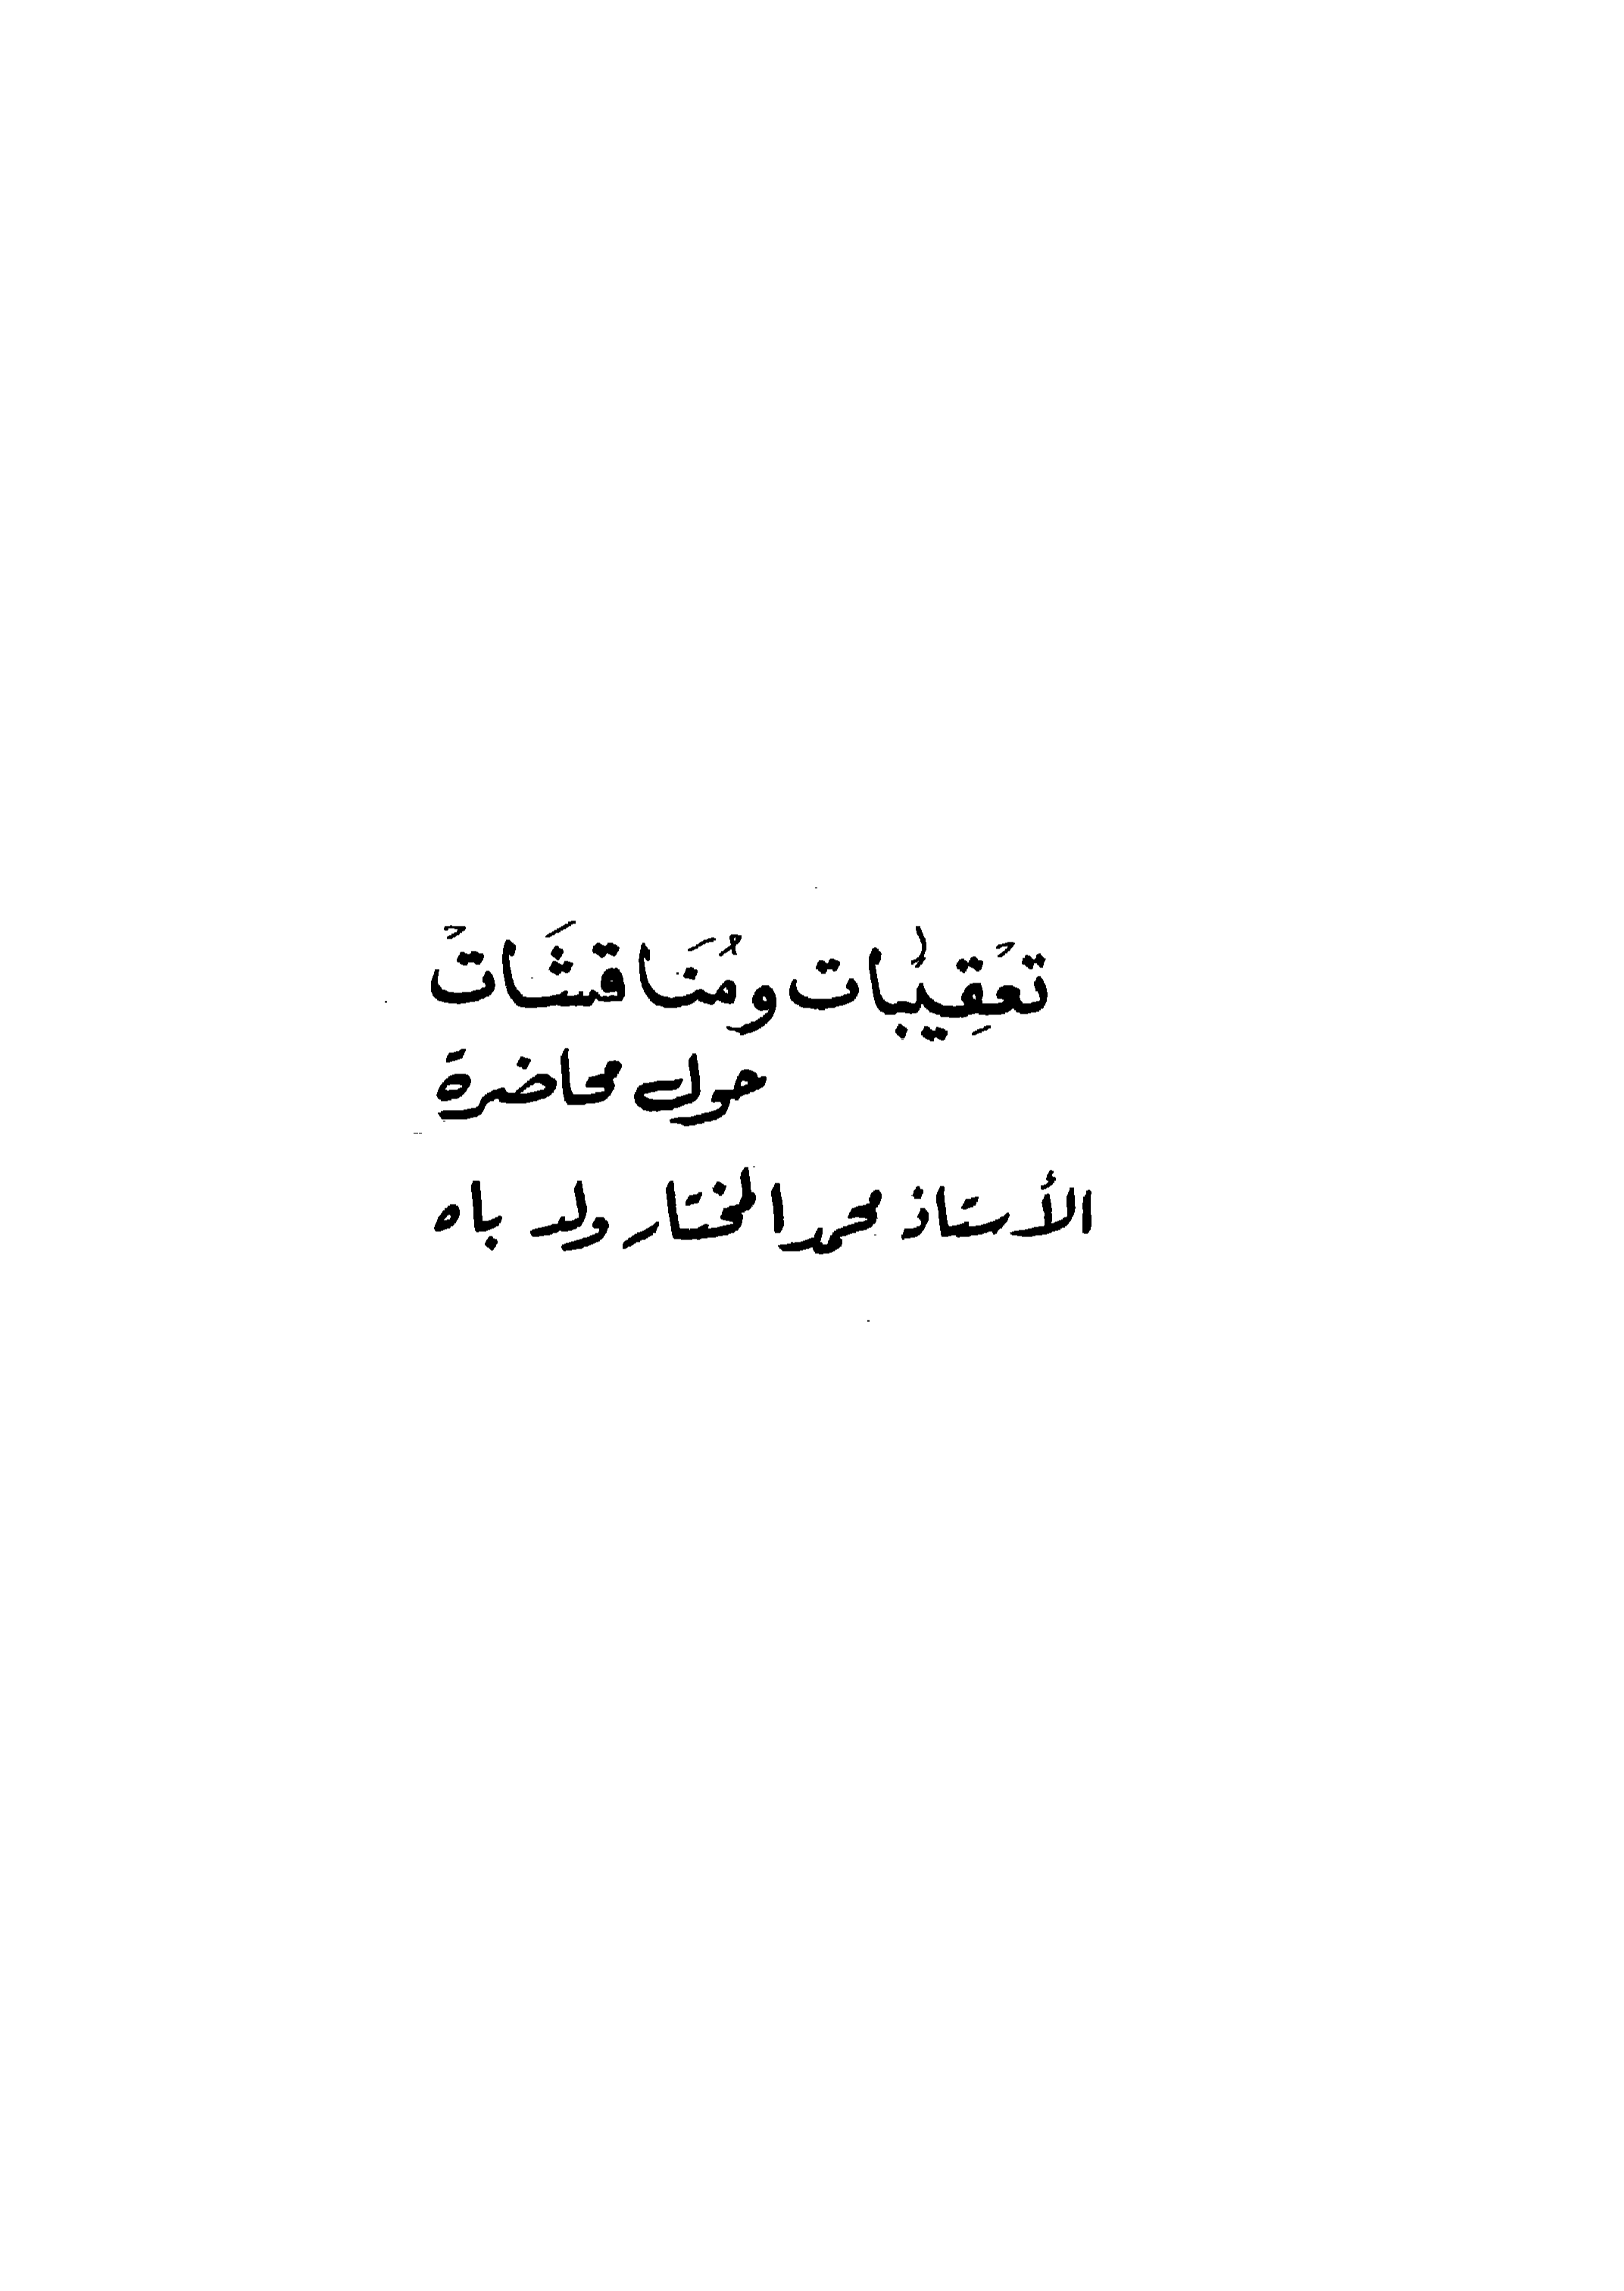 تعقيبات ومناقشات
حول محاضرة
الأستاذ محمد المختار ولد باه